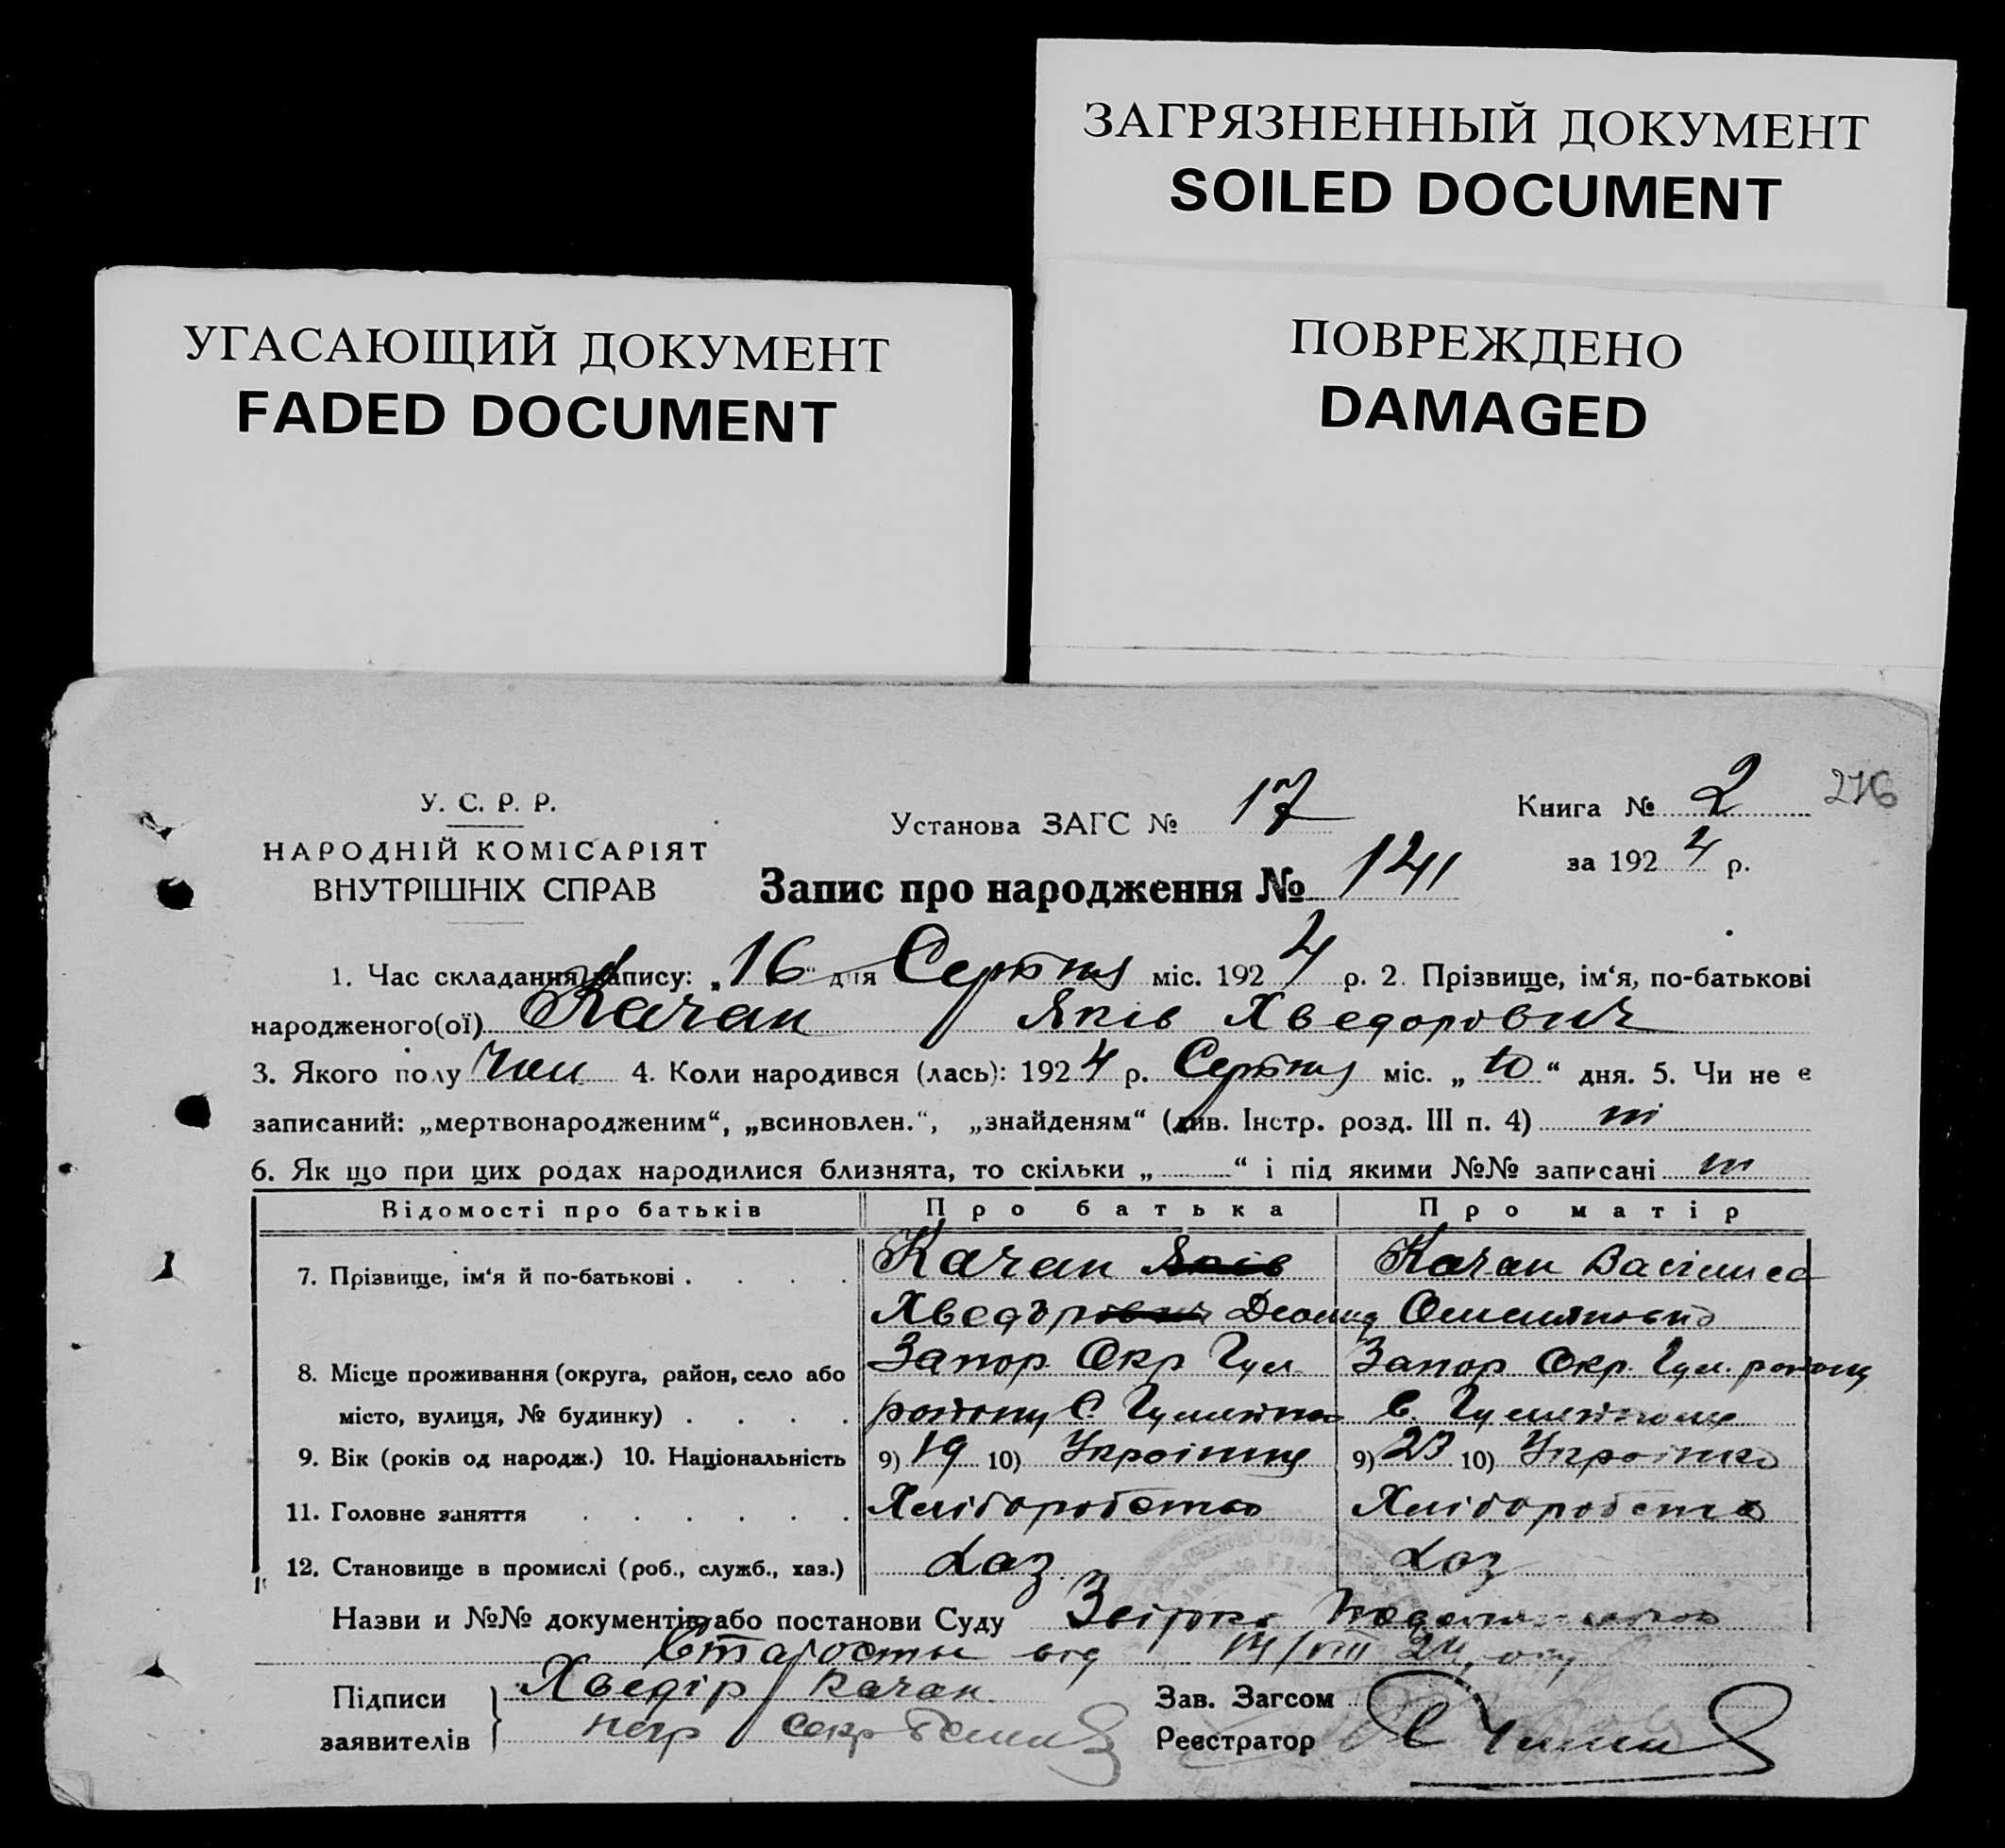 ЗАГРЯЗНЕННЫЙ ДОКУМЕНТ
SOILED DOCUMENT
УГАСАЮЩИЙ ДОКУМЕНТ
FADED DOCUMENT
ПОВРЕЖДЕНО
DAMAGED
У. С. Р. Р.
НАРОДНІЙ КОМІСАРІЯТ
ВНУТРІШНІХ СПРАВ
Установа ЗАГС № 17
Книга № 2
за 1924 р.
Запис про народження № 141
1. Час складання запису: „16“ дня Серпня міс. 1924 р. 2. Прізвище, ім‘я, по-батькові
народженого(ої) Качан Яків Хведорович
3. Якого полу Чол 4. Коли народився (лась): 1924 р. Серпня міс. „10“ дня. 5. Чи не є
записаний: „мертвонародженим“, „всиновлен.“, „знайденям“ (див. Інстр. розд. III п. 4) ні
6. Як що при цих родах народилися близнята, то скільки „ “ і під якими №№ записані ні
Відомості про батьків Про батька Про матір
7. Прізвище, ім‘я й по-батькові . . . . Качан Яків Качан Васіліса
Хведор
8. Місце проживання (округа, район, село або Запор Окр Гул Запор Окр. Гул. району
місто, вулиця, № будинку) . . . . району С.
9. Вік (років од народж.) 10. Національність 9) 19 10) Українць 9) 23 10) Українка
11. Головне заняття . . . . . . Хліборобство Хліборобство
12. Становище в промислі (роб., служб., хаз.) Хаз. Хаз
Назви и №№ документів або постанови Суду
Старости від 14/VIII 24
Підписи заявителів Хведір Качан
Зав. Загсом
Реєстратор